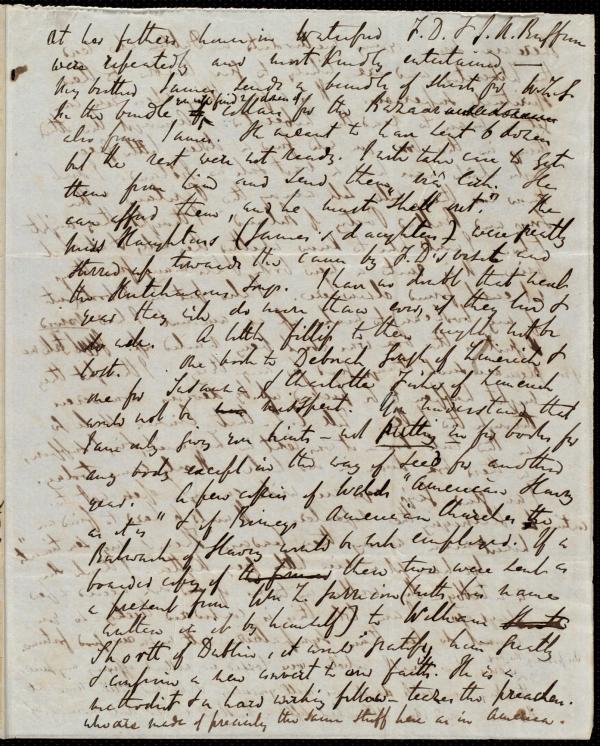 at his father's house in Waterford F.D. & J.N. Buffum
were repeatedly and most kindly entertained —
My brother James sends a bundle of shirts for
In the bundle collars for the Bazaar
also from James. He meant to have sent 6 dozen
but the rest were not ready. I will take care to get
them from him and send them via Cork. He
can afford them, and he must "shell out." The
Miss Haughtons (James's daughters) were greatly
stirred up towards the cause by F.D's visit and
the Hutchinsons songs. I have no doubt that next
year they will do more than ever, if they live &
do well. A little fillip to them might not be
lost. One book to Deborah of Limerick &
one for Susanna & Charlotte Fisher of Limerick
would not be misspent. You understand that
I am only giving you hints — not putting in for books for
any body except in the way of seed for another
year. A few copies of Weld's "American Slavery
as it is" & of Birneys American Churches the
Bulwark of Slavery would be well employed. If a
boarded copy of the former these two were sent as
a present from Wm L. Garrison (with his name
written in it by himself) to William
Shortt of Dublin, it would gratify him greatly
& confirm a new convert to our faith. He is a
methodist & a hard working fellow — teazes the preachers.
who are made of precisely the same stuff here as in America.